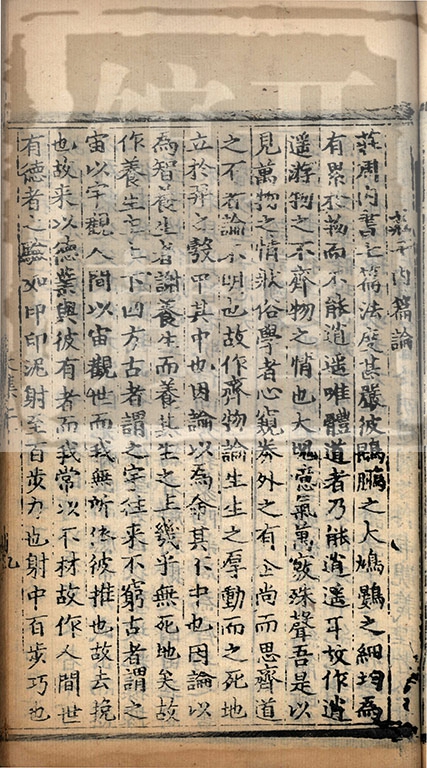 莊子内篇論
莊周内書七篇法度甚嚴彼鵾鵬之大鳩鷃之細均為
有累於物而不能逍遥唯體道者乃能逍遥耳故作逍
遥游物之不齊物之情也大塊噫氣萬竅殊聲吾是以
見萬物之情狀俗學者心窺券外之有企尚而思齊道
之不著論不明也故作齊物論生生之厚動而之死地
立於羿之彀中其中也因論以為命其不中也因論以
為智養生者謝養生而養其生之主幾乎無死地矣故
作養生主上下四方古者謂之宇往来不窮古者謂之
宙以宇觀人間以宙觀世而我無所依彼推也故去挽
也故来以德業與彼有者而我常以不材故作人間世
有德者之驗如印印泥射至百步力也射中百步巧也